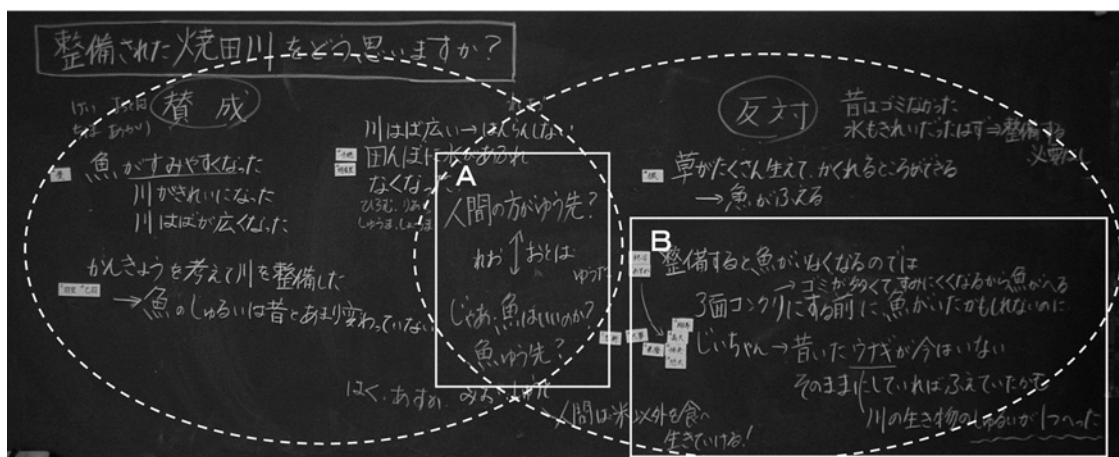 整備された焼田川をどう思いますか?
賛成
魚がすみやすくなった
川がきれいになった
川はばが広くなった
かんきょうを考えて川を整備した
→魚のしゅるいは昔とあまり変わっていない
川はば広い→はんらんしない
田んぼに水があふれ
なくなっ
ひろむ、りあ
しゅうま、しょうま
A
人間の方がゆう先?
れお おとは
ゆうた
じゃあ、魚はいいのか?
魚ゆう先?
はく、あすか
人間は米以外を食べ
生きていける!
反対
昔はゴミなかった
水もきれいだったはず⇒整備する
必要なし
草がたくさん生えて、かくれるところができる
→魚がふえる
B
整備すると魚がいなくなるのでは
→ゴミが多くてすみにくくなるから魚がへる
3面コンクリにする前に、魚がいたかもしれないのに
じいちゃん→昔いたウナギが今はいない
そのままにしていればふえていたかも
川の生き物のしゅるいが1つへった